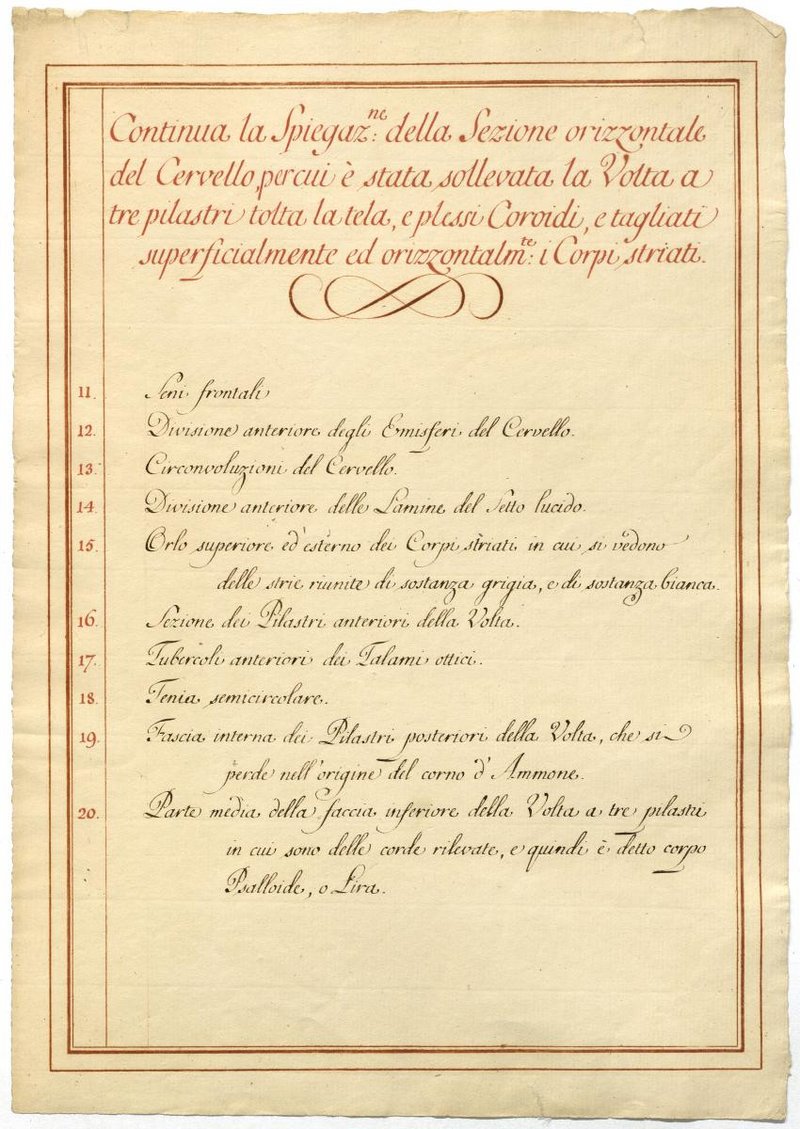 Continua la Spiegaz.ne: della Sezione orizzontale
del Cervello, per cui è stata sollevata la Volta a
tre pilastri tolta la tela, e plessi Coroidi, e tagliati
superficialmente ed orizzontalm.te: i Corpi striati.
11. Seni frontali
12. Divisione anteriore degli Emisferi del Cervello.
13. Circonvoluzioni del Cervello.
14. Divisione anteriore delle Lamine del Setto lucido.
15. Orlo superiore ed' esterno dei Corpi striati in cui si vedono
delle strie riunite di sostanza grigia, e di sostanza bianca.
16. Sezione dei Pilastri anteriori della Volta.
17. Tubercoli anteriori dei Talami ottici.
18. Tenia semicircolare.
19. Fascia interna dei Pilastri posteriori della Volta, che si
perde nell'origine del corno d'Ammone.
20. Parte media della faccia inferiore della Volta a tre pilastri
in cui sono delle corde rilevate, e quindi è detto corpo
Psalloide, o Lira.